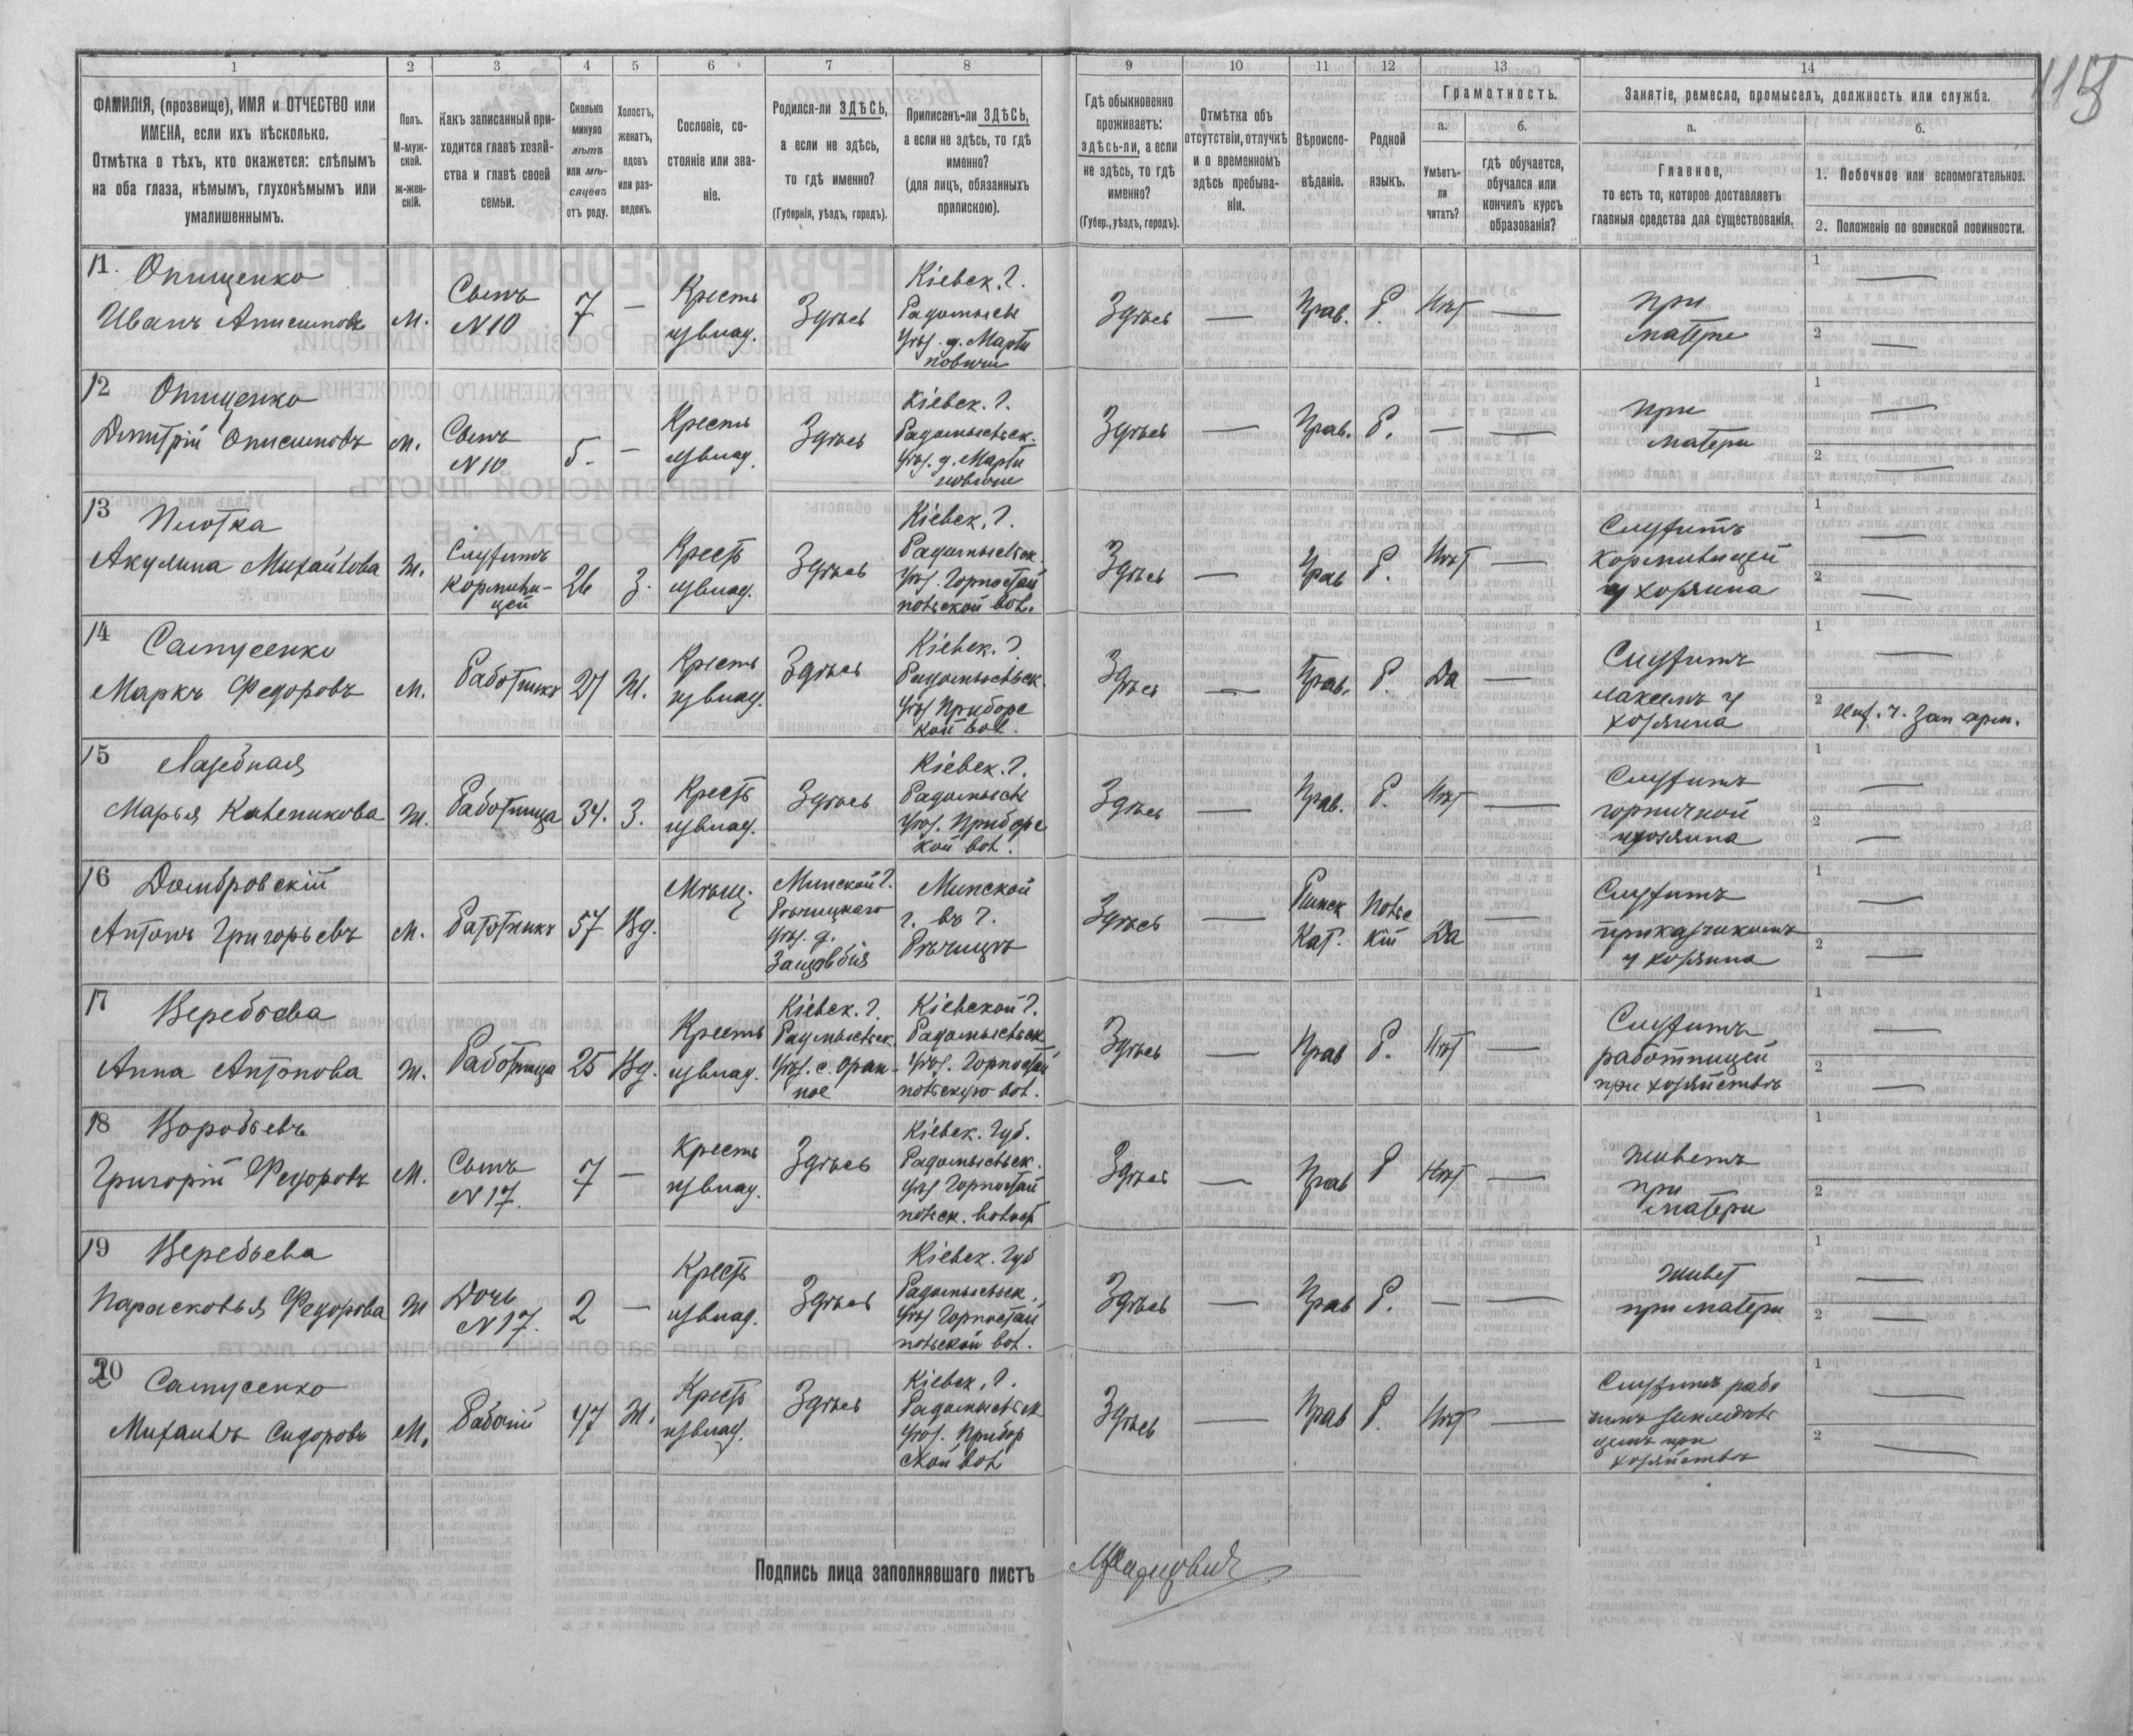 115
1 2 3 4 5 6 7 8 9 10 11 12 13 14
ФАМИЛІЯ, (прозвище), ИМЯ и ОТЧЕСТВО или
ИМЕНА, если ихъ нѣсколько.
Отмѣтка о тѣхъ, кто окажется: слѣпымъ
на оба глаза, нѣмымъ, глухонѣмымъ или
умалишеннымъ.
Полъ.
М-муж-
ской.
ж-жен-
скій.
Какъ записанный при-
ходится главѣ хозяй-
ства и главѣ своей
семьи.
Сколько
минуло
лѣтъ
или мѣ-
сяцевъ
отъ роду.
Холостъ,
женатъ,
вдовъ
или раз-
веденъ.
Сословіе, со-
стояніе или зва-
ніе.
Родился-ли ЗДѢСЬ,
а если не здѣсь,
то гдѣ именно?
(Губернія, уѣздъ, городъ).
Приписанъ-ли ЗДѢСЬ,
а если не здѣсь, то гдѣ
именно?
(для лицъ, обязанныхъ
припискою).
Гдѣ обыкновенно
проживаетъ:
здѣсь-ли, а если
не здѣсь, то гдѣ
именно?
(Губер., уѣздъ, городъ).
Отмѣтка объ
отсутствіи, отлучкѣ
и о временномъ
здѣсь пребыва-
ніи.
Вѣроиспо-
вѣданіе.
Родной
языкъ.
Грамотность.
а.
Умѣетъ-
ли
читать?
б.
гдѣ обучается,
обучался или
кончилъ курсъ
образованія?
Занятіе, ремесло, промыселъ, должность или служба.
а.
Главное,
то есть то, которое доставляетъ
главныя средства для существованія.
б.
1. Побочное или вспомогательное.
2. Положеніе по воинской повинности.
11. Онищенко
Иванъ Анисимовъ
М.
Сынъ
N 10
7 —
Крестъ
изъ влад.
Здѣсь
Кіевск. г.
Радомысл
уѣз. д. Марти
новичи
Здѣсь — Прав. Р. Нѣт —
при
матери
1 —
2 —
12 Онищенко
Дмитрій Онисимовъ
М.
Сынъ
N 10
5. —
Крестъ
изъ влад.
Здѣсь
Кіевск. г.
Радомысльск.
уѣз. д. Марти
новичи
Здѣсь — Прав. Р. — —
при
матери
1 —
2 —
13 Плотка
Акулина Михайлова
Ж.
Служитъ
кормили-
цей
26 З.
Крест
изъ влад.
Здѣсь
Кіевск. г.
Радомысльск.
уѣз. Горностай
польской вол.
Здѣсь — Прав Р. Нѣт —
Служитъ
кормилицей
у хозяина
1 —
2 —
14 Самусенко
Маркъ Федоровъ
М.
Работникъ
27 Ж.
Крестъ
изъ влад.
Здѣсь
Кіевск. г.
Радомысльск.
уѣз Приборс
кой вол.
Здѣсь — Прав. Р. Да —
Служитъ
лакеемъ у
хозяина
1 —
2 Ниж. ч. Зап арм.
15 Лазебная
Марья Каленикова
Ж.
Работница
34. З.
Крест
изъ влад.
Здѣсь
Кіевск. г.
Радомысл
уѣз. Приборс
кой вол.
Здѣсь — Прав. Р. Нѣт —
Служитъ
горничной
у хозяина
1 —
2 —
16 Домбровскій
Антонъ Григорьевъ
М.
Работникъ
57 Вд.
Мѣщ.
Минской г.
Рѣчицкаго
уѣз. д.
Минской
г. въ г.
Рѣчицѣ
Здѣсь —
Римск
Кат.
Польс
кій
Да —
Служитъ
приказчикомъ
у хозяина
1 —
2 —
17 Веребьева
Анна Антонова
Ж.
Работница
25 Вд.
Крестъ
изъ влад.
Кіевск. г.
Радмысльск.
уѣз. с. Оран-
ное
Кіевской г.
Радомысльск
уѣз. Горностай
польскую вол.
Здѣсь — Прав Р. Нѣт —
Служитъ
работницей
при хозяйствѣ
1 —
2 —
18 Воробьевъ
Григорій Федоровъ
М.
Сынъ
N 17.
7 —
Крестъ
изъ влад.
Здѣсь
Кіевск. Губ.
Радомысльск.
уѣз Горностай
польск. волост
Здѣсь — Прав Р Нѣт —
Живетъ
при
матери
1
2
19 Веребьева
Парасковья Федорова
Ж
Дочь
N 17.
2 —
Крест
изъ влад.
Здѣсь
Кіевск. Губ
Радомысльск.
уѣз Горностай
польской вол.
Здѣсь — Прав Р. — —
Живет
при матери
1 —
2 —
20 Самусенко
Михаилъ Сидоровъ
М.
Рабочій
47 Ж.
Крест
изъ влад.
Здѣсь
Кіевск. г.
Радомысльск
уѣз. Прибор
ской вол
Здѣсь — Прав Р. Нѣт —
Служитъ рабо
чимъ земледѣль
цемъ при
хозяйствѣ
1 —
2 —
Подпись лица заполнявшаго листъ